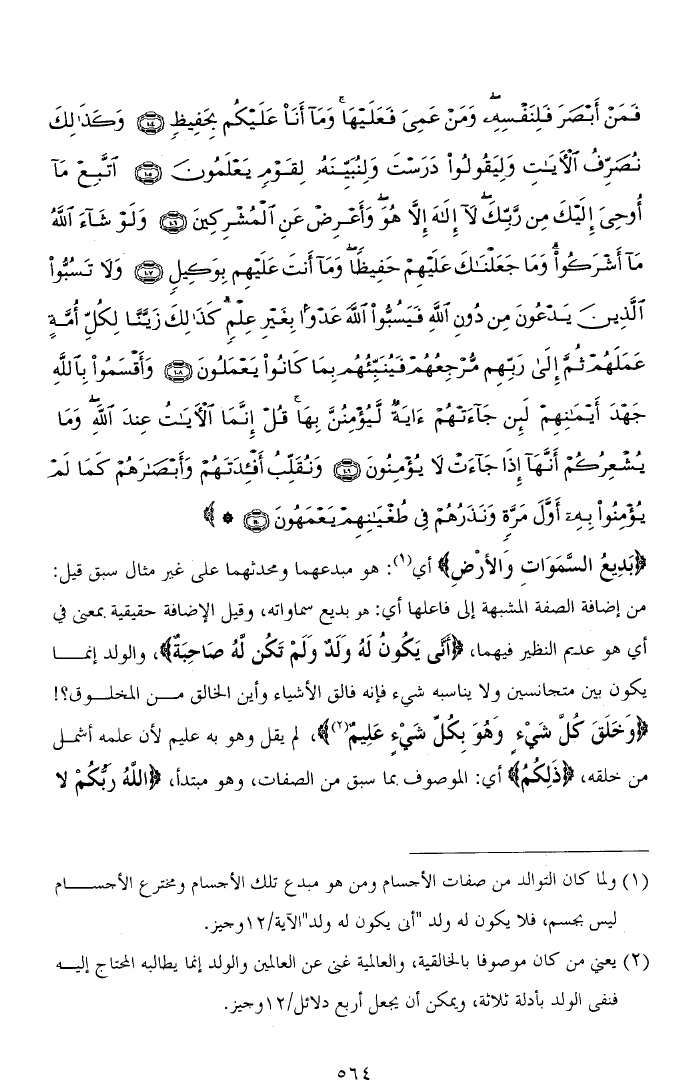 فَمَنْ أَبْصَرَ فَلِنَفْسِهِۦ ۖ وَمَنْ عَمِىَ فَعَلَيْهَا ۚ وَمَآ أَنَا۠ عَلَيْكُم بِحَفِيظٍ ۝١٠٤ وَكَذَٰلِكَ
نُصَرِّفُ ٱلْأَيَٰتِ وَلِيَقُولُوا۟ دَرَسْتَ وَلِنُبَيِّنَهُۥ لِقَوْمٍ يَعْلَمُونَ ۝١٠٥ ٱتَّبِعْ مَآ
أُوحِىَ إِلَيْكَ مِن رَّبِّكَ ۖ لَآ إِلَٰهَ إِلَّا هُوَ ۖ وَأَعْرِضْ عَنِ ٱلْمُشْرِكِينَ ۝١٠٦ وَلَوْ شَآءَ ٱللَّهُ
مَآ أَشْرَكُوا۟ ۗ وَمَا جَعَلْنَٰكَ عَلَيْهِمْ حَفِيظًا ۖ وَمَآ أَنتَ عَلَيْهِم بِوَكِيلٍ ۝١٠٧ وَلَا تَسُبُّوا۟
ٱلَّذِينَ يَدْعُونَ مِن دُونِ ٱللَّهِ فَيَسُبُّوا۟ ٱللَّهَ عَدْوًۢا بِغَيْرِ عِلْمٍ ۗ كَذَٰلِكَ زَيَّنَّا لِكُلِّ أُمَّةٍ
عَمَلَهُمْ ثُمَّ إِلَىٰ رَبِّهِم مَّرْجِعُهُمْ فَيُنَبِّئُهُم بِمَا كَانُوا۟ يَعْمَلُونَ ۝١٠٨ وَأَقْسَمُوا۟ بِٱللَّهِ
جَهْدَ أَيْمَٰنِهِمْ لَئِن جَآءَتْهُمْ ءَايَةٌ لَّيُؤْمِنُنَّ بِهَا ۚ قُلْ إِنَّمَا ٱلْأَيَٰتُ عِندَ ٱللَّهِ ۖ وَمَا
يُشْعِرُكُمْ أَنَّهَآ إِذَا جَآءَتْ لَا يُؤْمِنُونَ ۝١٠٩ وَنُقَلِّبُ أَفْـِٔدَتَهُمْ وَأَبْصَٰرَهُمْ كَمَا لَمْ
يُؤْمِنُوا۟ بِهِۦٓ أَوَّلَ مَرَّةٍ وَنَذَرُهُمْ فِى طُغْيَٰنِهِمْ يَعْمَهُونَ ۝١١٠ * ﴾
﴿بَدِيعُ السَّمَوَاتِ وَالأَرْضِ﴾ أي(١): هو مبدعهما ومحدثهما على غير مثال سبق قيل:
من إضافة الصفة المشبهة إلى فاعلها أي: هو بديع سماواته، وقيل الإضافة حقيقية بمعنى في
أي هو عديم النظير فيهما، ﴿أَنَّى يَكُونُ لَهُ وَلَدٌ وَلَمْ تَكُن لَّهُ صَاحِبَةٌ﴾، والولد إنمــا
يكون بين متجانسين ولا يناسبه شيء فإنه فالق الأشياء وأين الخالق مــن المخلــوق؟!
﴿وَخَلَقَ كُلَّ شَيْءٍ وَهُوَ بِكُلِّ شَيْءٍ عَلِيمٌ(٢)﴾، لم يقل وهو به عليم لأن علمه أشمل
من خلقه، ﴿ذَلِكُمُ﴾ أي: الموصوف بما سبق من الصفات، وهو مبتدأ، ﴿اللَّهُ رَبُّكُمْ لا
(١) ولما كان التوالد من صفات الأجسام ومن هو مبدع تلك الأجسام ومخترع الأجســام
ليس بجسم، فلا يكون له ولد "أنى يكون له ولد"الآية/١٢وجيز.
(٢) يعني من كان موصوفا بالخالقية، والعالمية غني عن العالمين والولد إنما يطالبه المحتاج إليــه
فنفى الولد بأدلة ثلاثة، ويمكن أن يجعل أربع دلائل/١٢وجيز.
٥٦٤